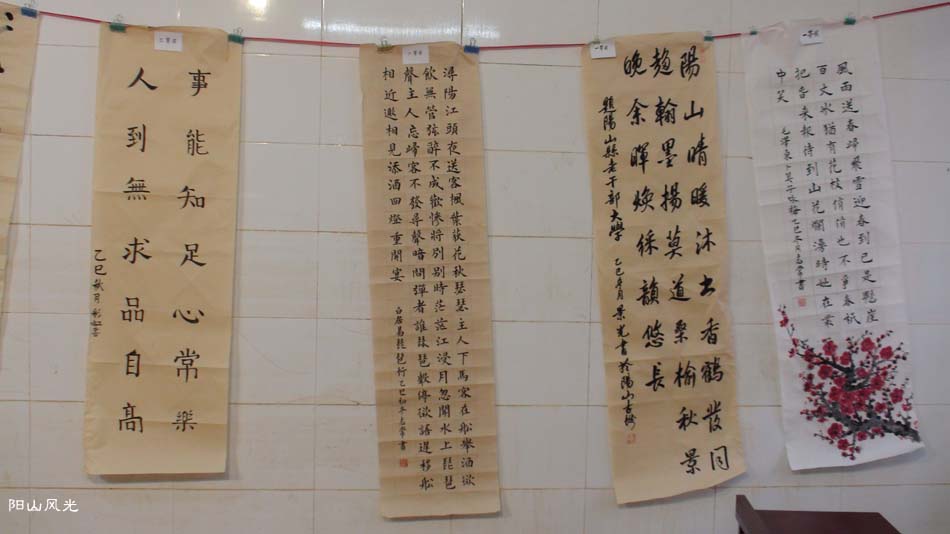 事能知足心常樂
人到無求品自高
乙巳秋月
潯陽江頭夜送客楓葉荻花秋瑟瑟主人下馬客在船舉酒欲
飲無管弦醉不成歡慘將別別時茫茫江浸月忽聞水上琵琶
聲主人忘歸客不發尋聲暗問彈者誰琵琶聲停欲語遲移船
相近邀相見添酒回燈重開宴
白居易琵琶行乙巳初冬志常書
一等奖
陽山晴暖沐書香鶴發同
趨翰墨揚莫道桑榆秋景
晚余暉煥綵韻悠長
題陽山縣老干部大學
景光書於陽山
一等奖
風雨送春歸飛雪迎春到已是懸崖
百丈冰猶有花枝俏俏也不爭春祇
把春來報待到山花爛漫時她在叢
中笑
毛澤東卜算子咏梅乙巳冬月志常書
阳山风光